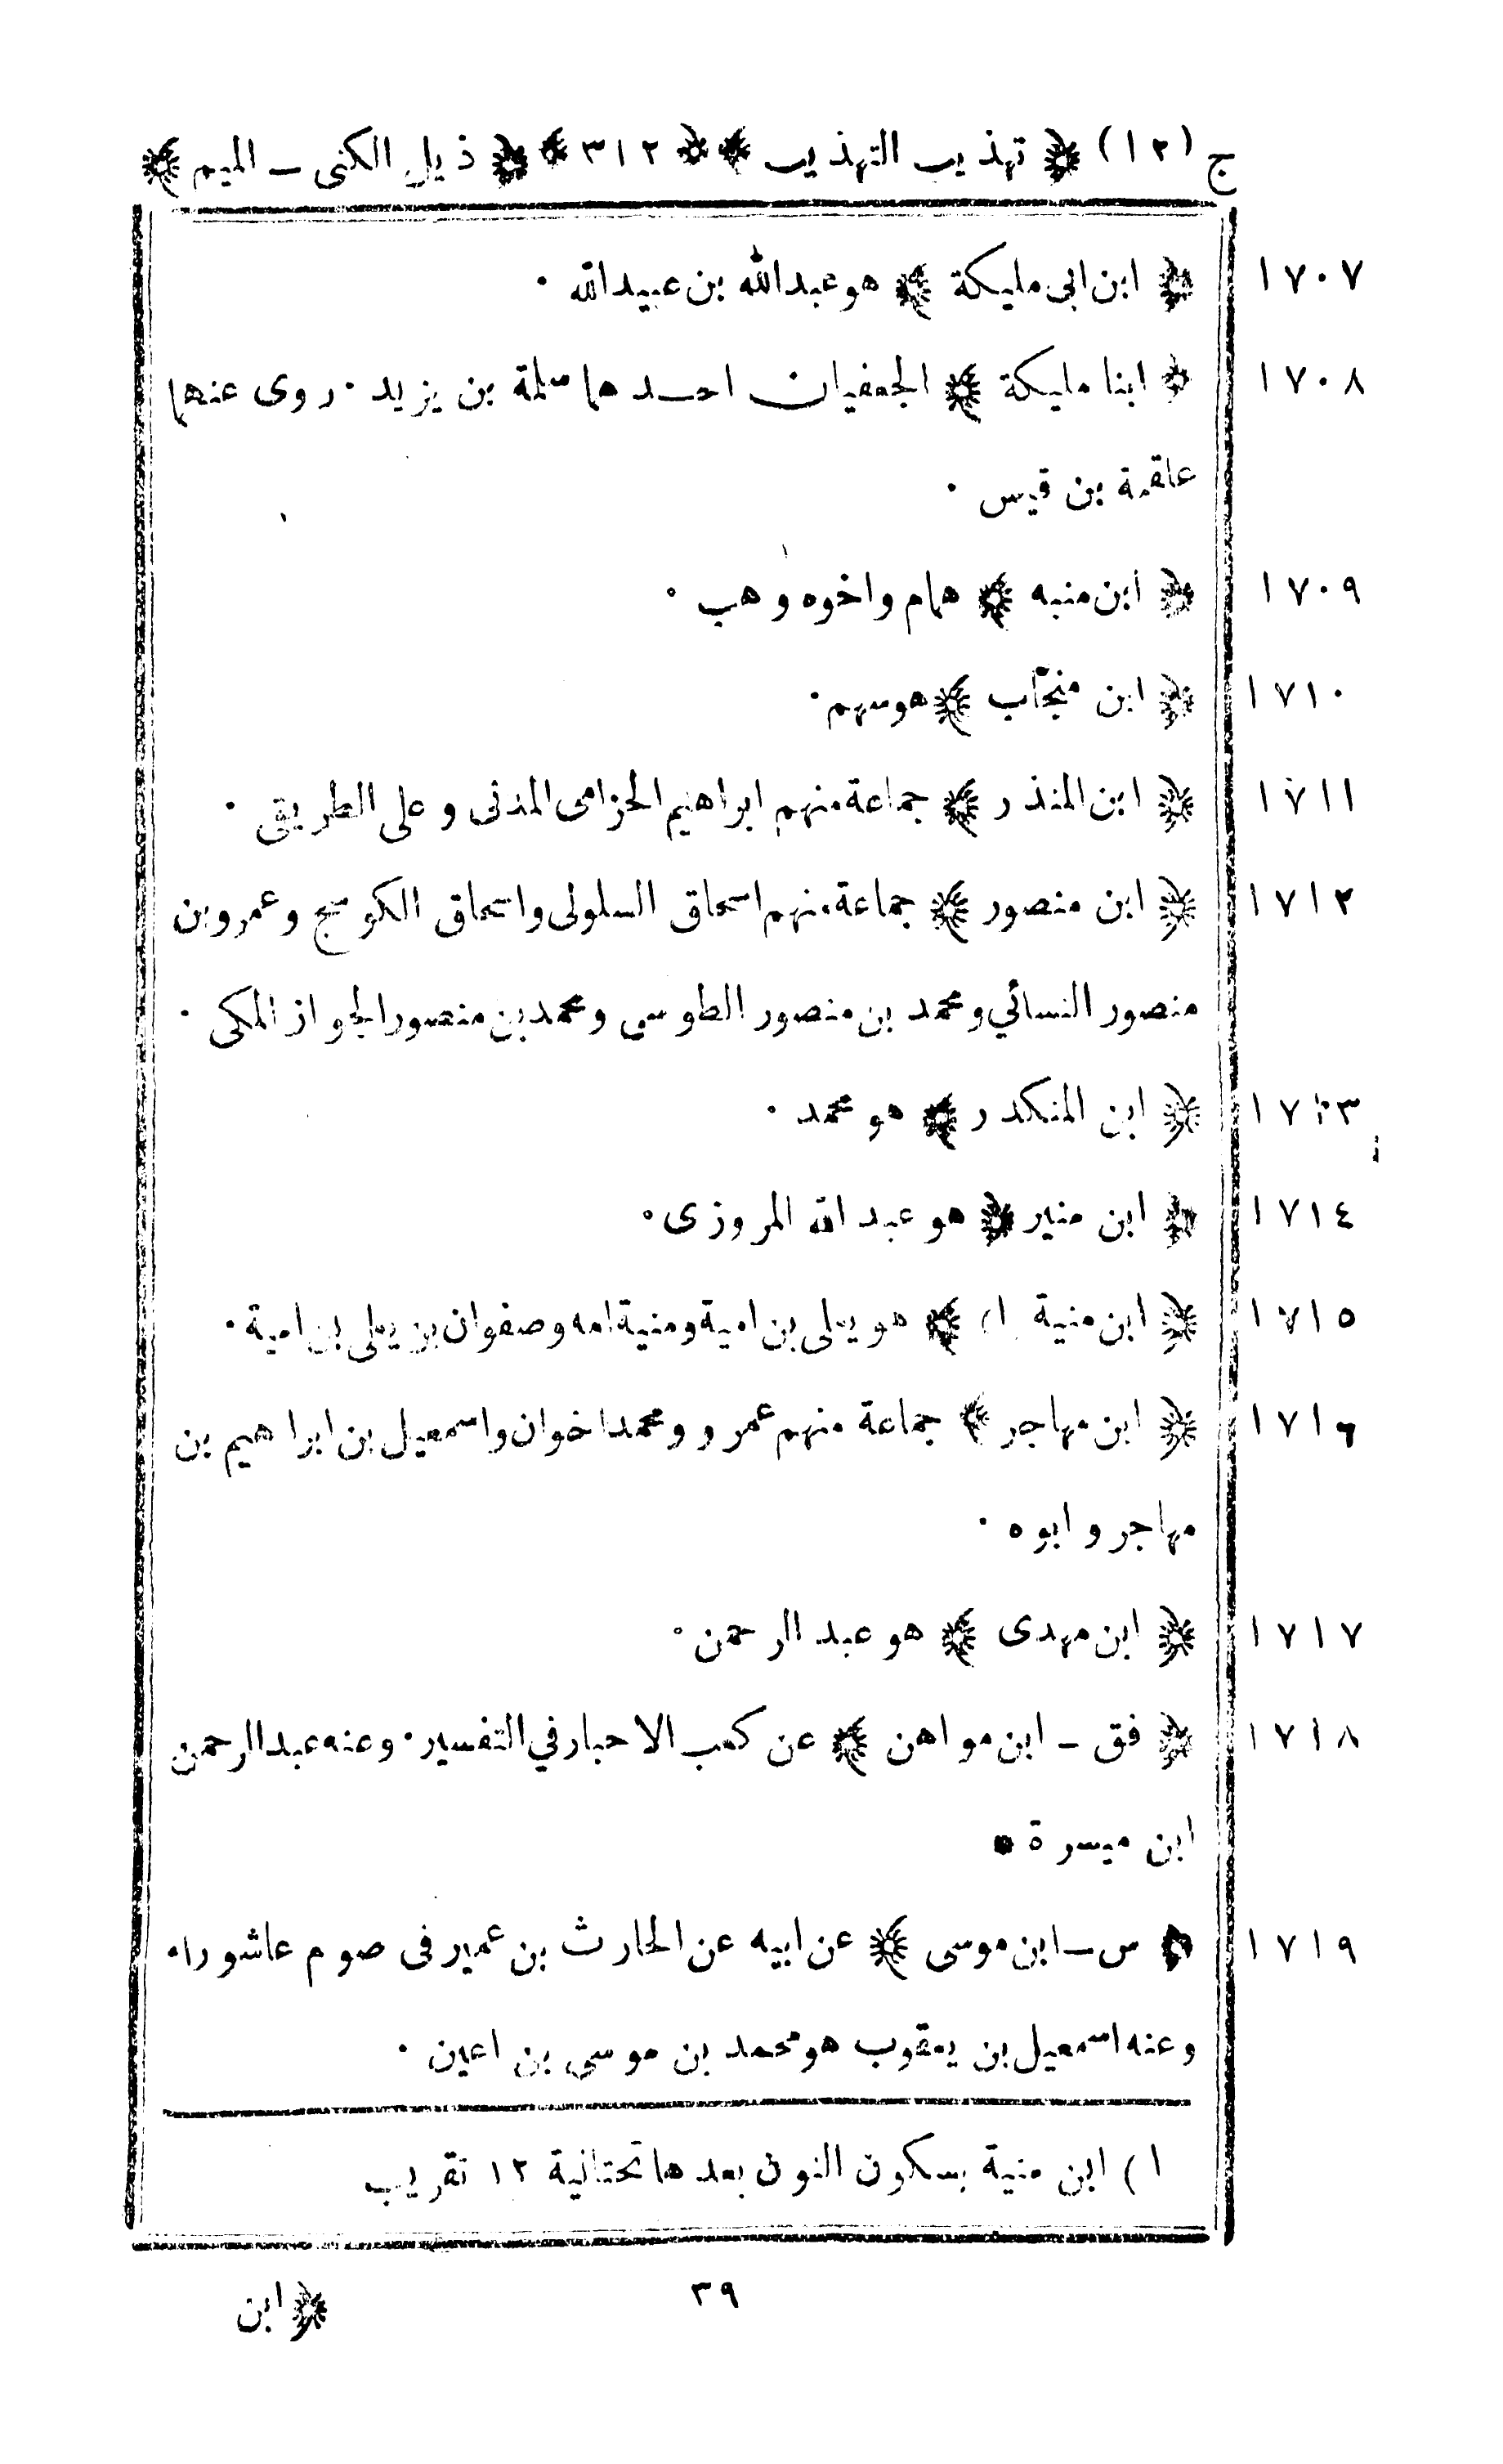 ج (١٢) ﴿ تهذيب التهذيب ﴾ ﴿ ٣١٢ ﴾ ﴿ ذيل الكنى ـ الميم ﴾
١٧٠٧ ﴿ ابن ابى مليكة ﴾ هو عبدالله بن عبيدالله ٠
١٧٠٨ ﴿ ابنا مليكة ﴾ الجعفيان احدهما سلمة بن يزيد ٠ روى عنهما
علقمة بن قيس ٠
١٧٠٩ ﴿ ابن منبه ﴾ همام واخوه وهب ٠
١٧١٠ ﴿ ابن منجاب ﴾ هو سهم ٠
١٧١١ ﴿ ابن المنذر ﴾ جماعة منهم ابراهيم الحزامى المدنى وعلى الطريقى ٠
١٧١٢ ﴿ ابن منصور ﴾ جماعة منهم اسحاق السلولى واسحاق الكوسج وعمرو بن
منصور النسائي ومحمد بن منصور الطوسى ومحمد بن منصور الجواز المكى ٠
١٧١٣ ﴿ ابن المنكدر ﴾ هو محمد ٠
١٧١٤ ﴿ ابن منير ﴾ هو عبد الله المروزى ٠
١٧١٥ ﴿ ابن منية ١) ﴾ هو يعلى بن امية ومنية امه وصفوان بن يعلى بن امية ٠
١٧١٦ ﴿ ابن مهاجر ﴾ جماعة منهم عمرو ومحمد اخوان واسمعيل بن ابراهيم بن
مهاجر وابوه ٠
١٧١٧ ﴿ ابن مهدى ﴾ هو عبد الرحمن ٠
١٧١٨ ﴿ فق ـ ابن مواهن ﴾ عن كعب الاحبار في التفسير ٠ وعنه عبدالرحمن
ابن ميسرة ٠
١٧١٩ ﴿ س ـ ابن موسى ﴾ عن ابيه عن الحارث بن عمير فى صوم عاشوراء
وعنه اسمعيل بن يعقوب هو محمد بن موسى بن اعين ٠
١) ابن منية بسكون النون بعدها تحتانية ١٢ تقريب
٣٩
﴿ ابن